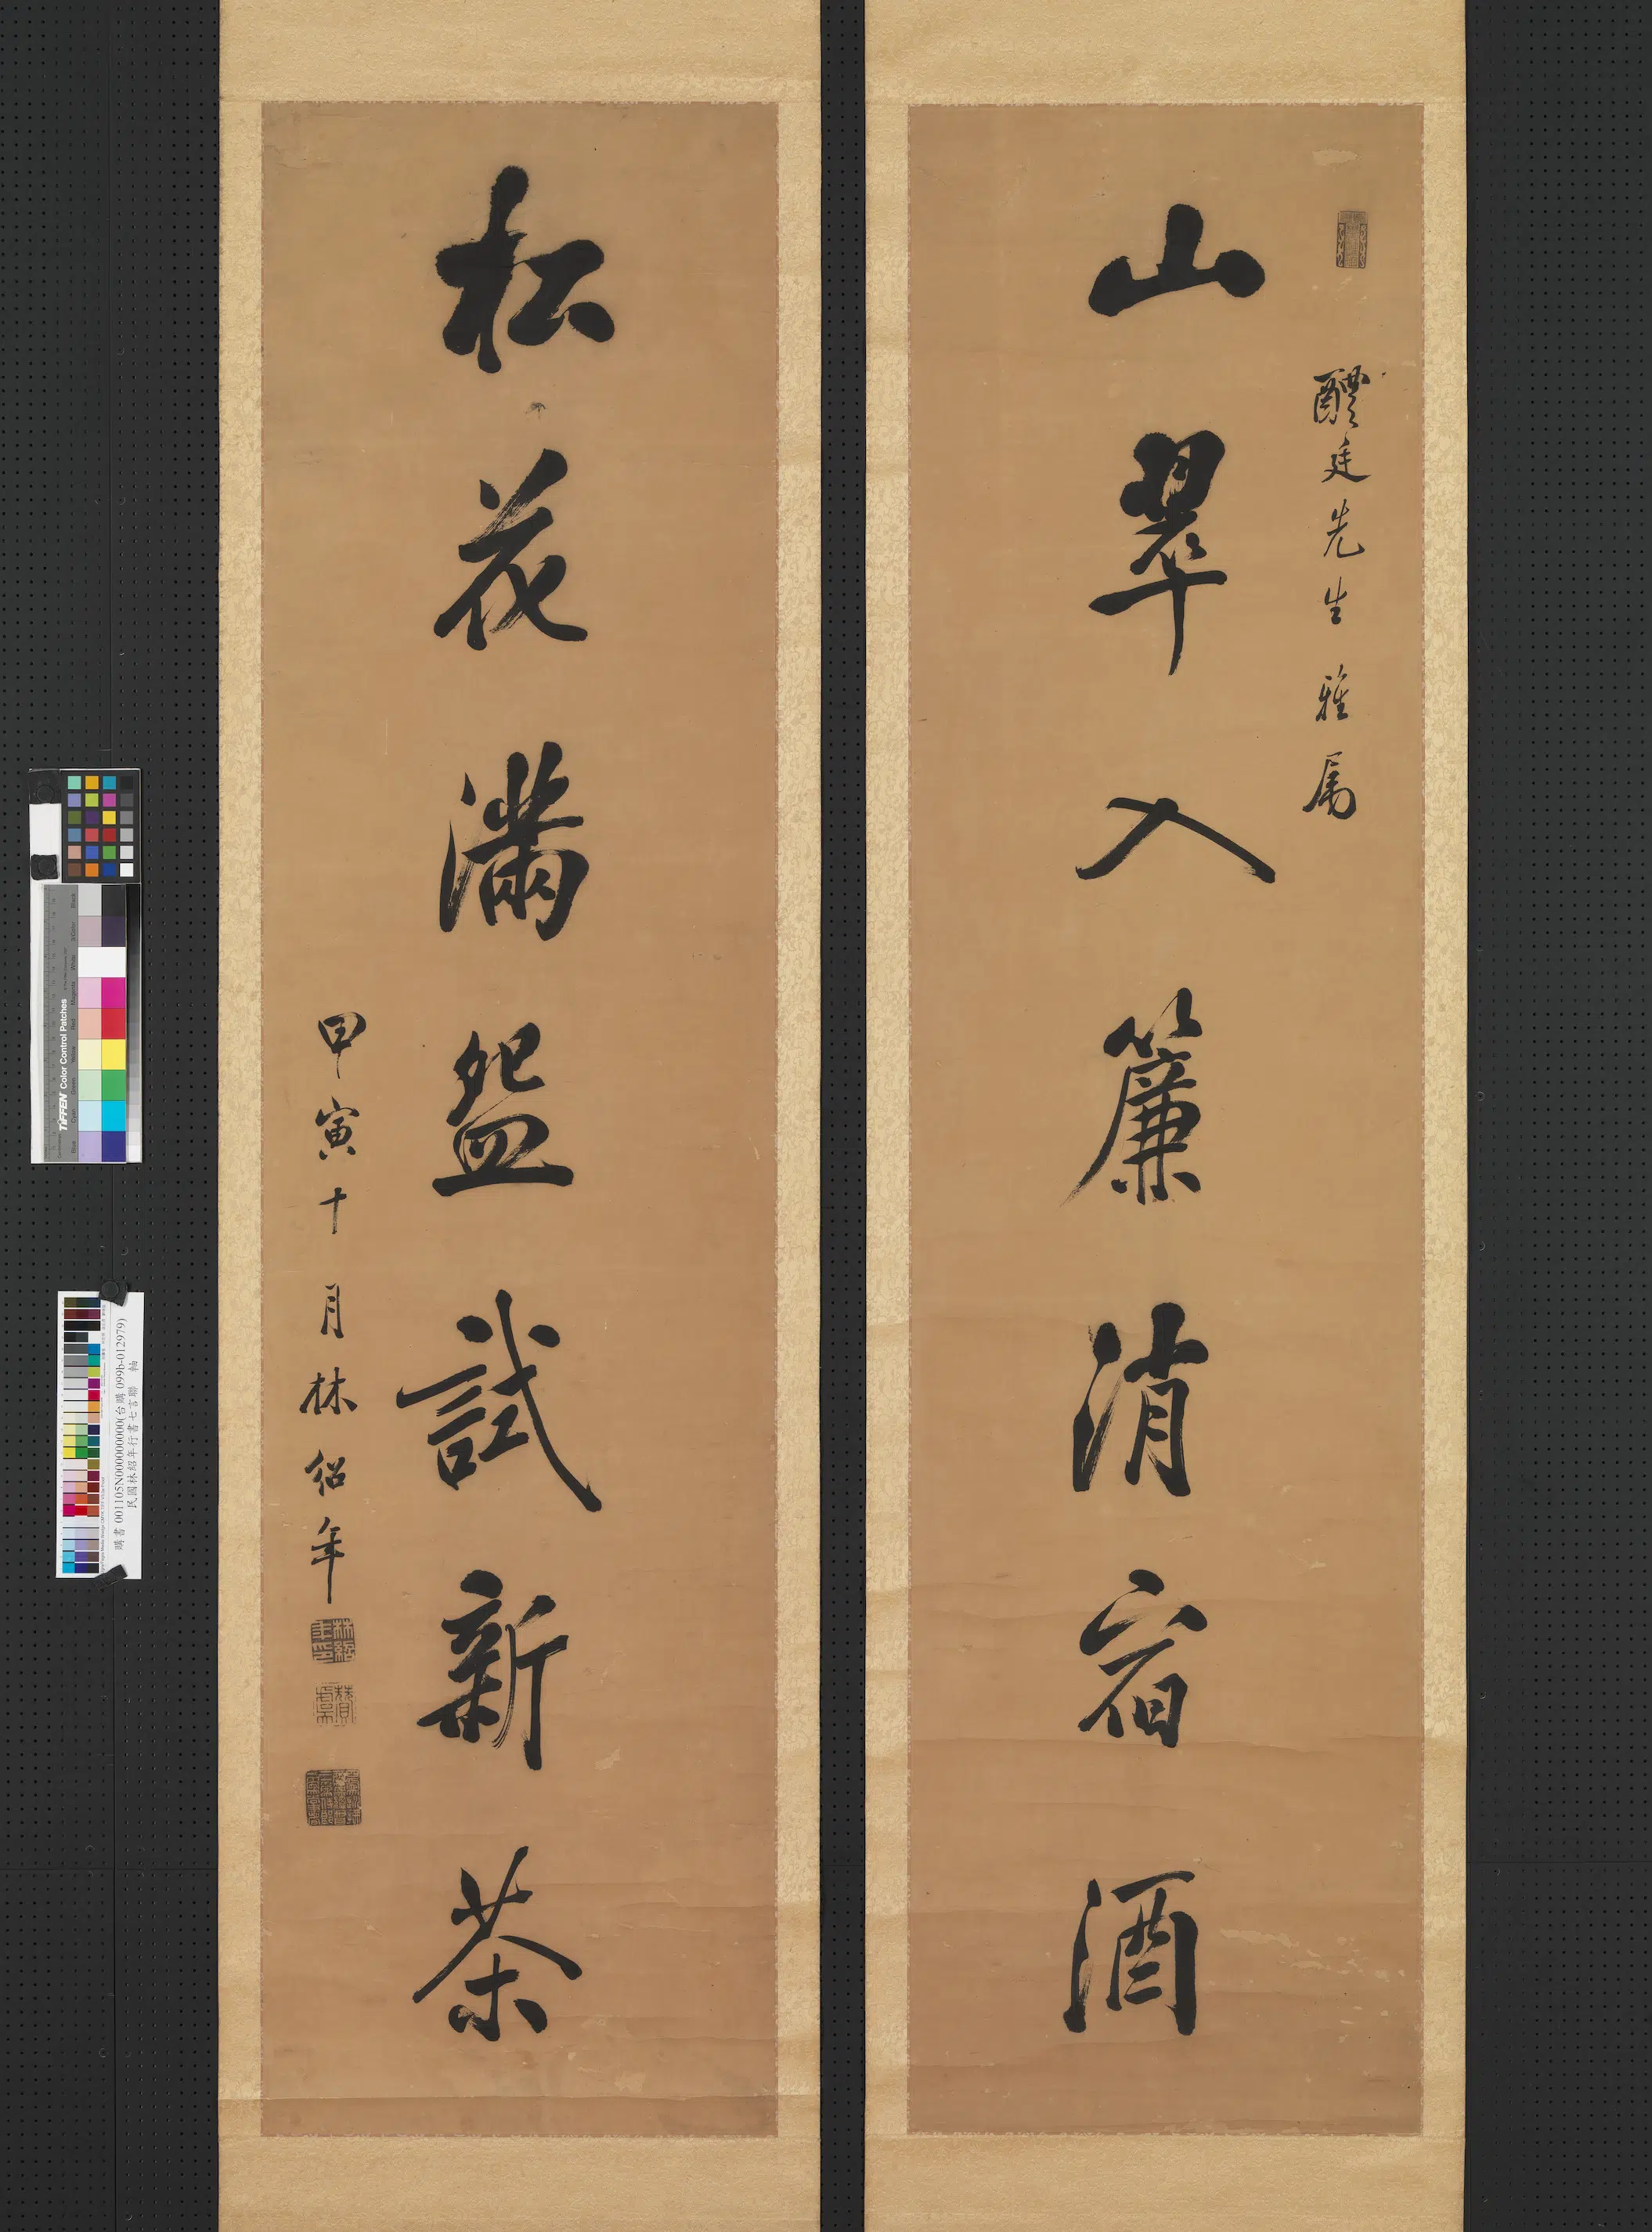 醴廷先生雅属
山翠入簾消宿酒
松花滿盌試新茶
甲寅十月林紹年
林紹年印
贊虞
購書 001105N000000000(台購 099b-012979)
民國林紹年行書七言聯 軸
TIFFEN Color Control Patches
Blue
Cyan
Green
Yellow
Red
Magenta
White
3/Color
Black